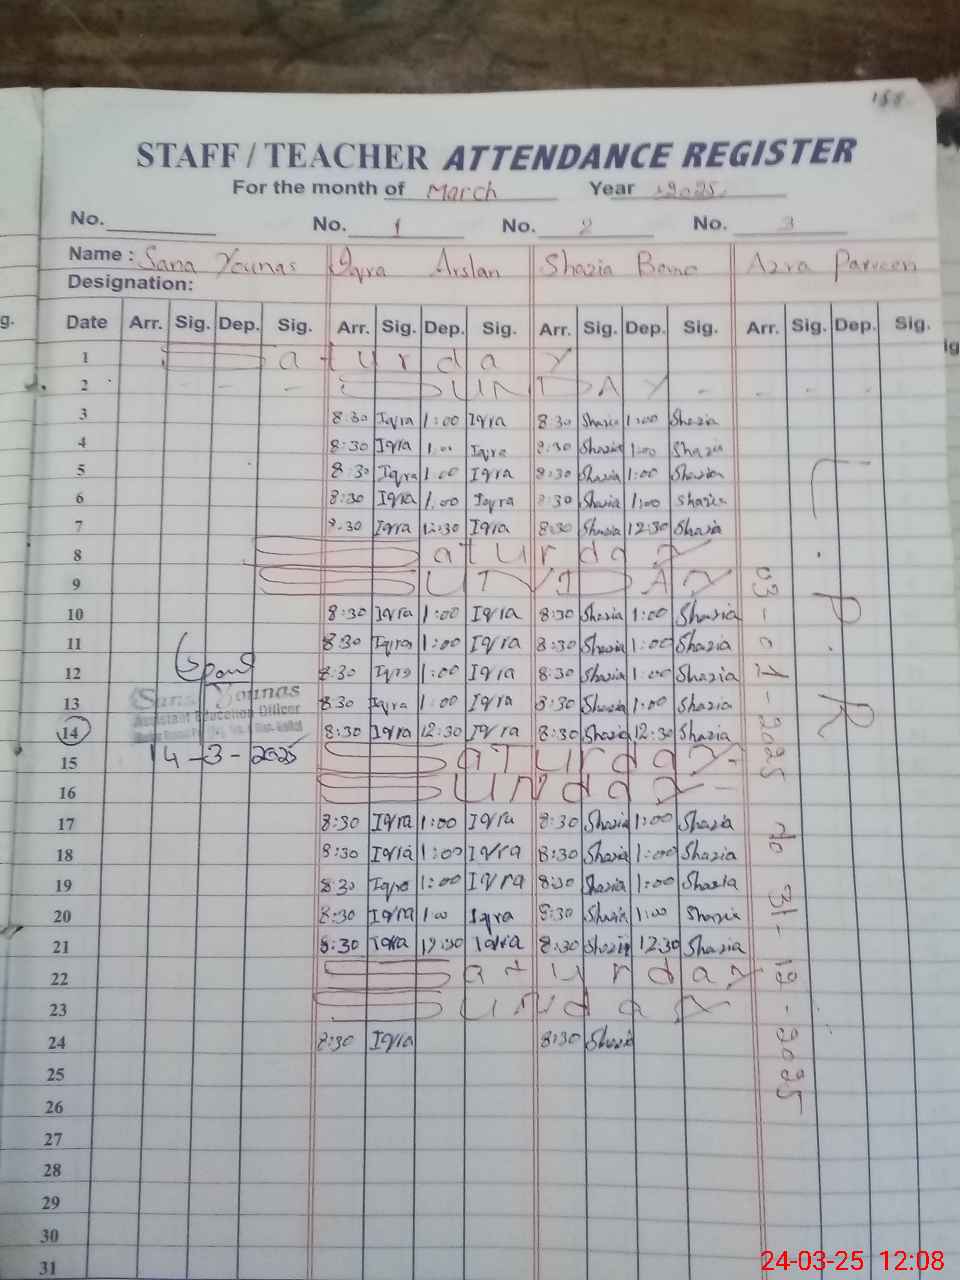 188
STAFF / TEACHER ATTENDANCE REGISTER
For the month of March Year 2025
No. No. 1 No. 2 No. 3
Name : Sana Younas Iqra Arslan Shazia Bano Azra Parveen
Designation:
g. Date Arr. Sig. Dep. Sig. Arr. Sig. Dep. Sig. Arr. Sig. Dep. Sig. Arr. Sig. Dep. Sig. ig
1 Saturday
2 - - - SUNDAY - - - -
3 8:30 Iqra 1:00 Iqra 8:30 Shazia 1:00 Shazia
4 8:30 Iqra 1:00 Iqra 8:30 Shazia 1:00 Shazia
5 8:30 Iqra 1:00 Iqra 8:30 Shazia 1:00 Shazia
6 8:30 Iqra 1:00 Iqra 8:30 Shazia 1:00 Shazia
7 8:30 Iqra 12:30 Iqra 8:30 Shazia 12:30 Shazia
8 Saturday
9 SUNDAY
10 8:30 Iqra 1:00 Iqra 8:30 Shazia 1:00 Shazia
11 8:30 Iqra 1:00 Iqra 8:30 Shazia 1:00 Shazia
12 8:30 Iqra 1:00 Iqra 8:30 Shazia 1:00 Shazia
13 Sana Younas 8:30 Iqra 1:00 Iqra 8:30 Shazia 1:00 Shazia
Assistant Education Officer
14 8:30 Iqra 12:30 Iqra 8:30 Shazia 12:30 Shazia
14-3-2025
15 Saturday -
16 Sunday -
17 8:30 Iqra 1:00 Iqra 8:30 Shazia 1:00 Shazia
18 8:30 Iqra 1:00 Iqra 8:30 Shazia 1:00 Shazia
19 8:30 Iqra 1:00 Iqra 8:30 Shazia 1:00 Shazia
20 8:30 Iqra 1:00 Iqra 8:30 Shazia 1:00 Shazia
21 8:30 Iqra 12:30 Iqra 8:30 Shazia 12:30 Shazia
22 Saturday
23 Sunday
24 8:30 Iqra 8:30 Shazia
25
26
27
28
29
30
31
L.P.R
03-01-2025 to 31-12-2025
24-03-25 12:08